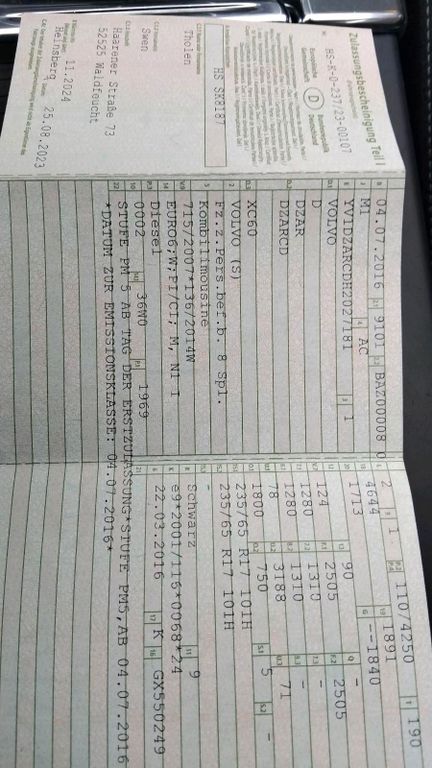 Zulassungsbescheinigung Teil I
HS-K-0-237/23-00107
Europäische Gemeinschaft
D
Bundesrepublik Deutschland
HS SK8187
Tholen
Swen
Haarener Straße 73
52525 Waldfeucht
11.2024
Heinsberg
25.08.2023
B 04.07.2016 2.1 9101 2.2 BAZ00008 0
J M1 4 AC
E YV1DZARCDH2027181 3 1
D.1 VOLVO
D.2 D
DZAR
DZARCD
D.3 XC60
2 VOLVO (S)
5 Fz.z.Pers.bef.b. 8 Spl.
Kombilimousine
V.9 715/2007*136/2014W
14 EURO6;W;PI/CI; M, N1 I
P.3 Diesel
10 0002 14.1 36W0 P.1 1969
22 STUFE PM 5 AB TAG DER ERSTZULASSUNG*STUFE PM5,AB 04.07.2016
*DATUM ZUR EMISSIONSKLASSE: 04.07.2016*
L 2 9 1 P.2 P.4 110/4250 T 190
18 4644 19 1891
20 1713 G --1840
12 - 13 90 Q -
V.7 124 F.1 2505 F.2 2505
7.1 1280 7.2 1310 7.3 -
8.1 1280 8.2 1310 8.3 -
U.1 78 U.2 3188 U.3 71
O.1 1800 O.2 750 S.1 5 S.2 -
15.1 235/65 R17 101H
15.2 235/65 R17 101H
15.3 -
R Schwarz 11 9
K e9*2001/116*0068*24
6 22.03.2016 17 K 16 GX550249
21